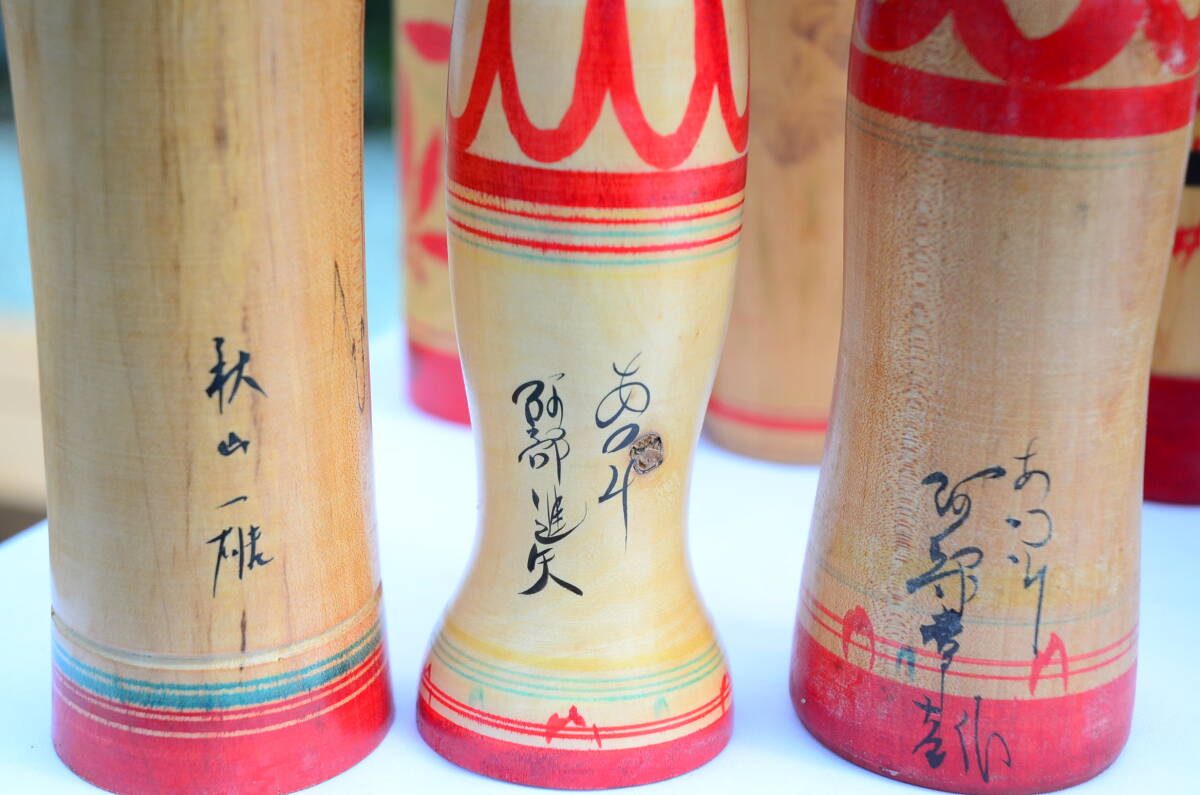 秋山一雄
あつみ
阿部進矢
あつみ
阿部常吉作